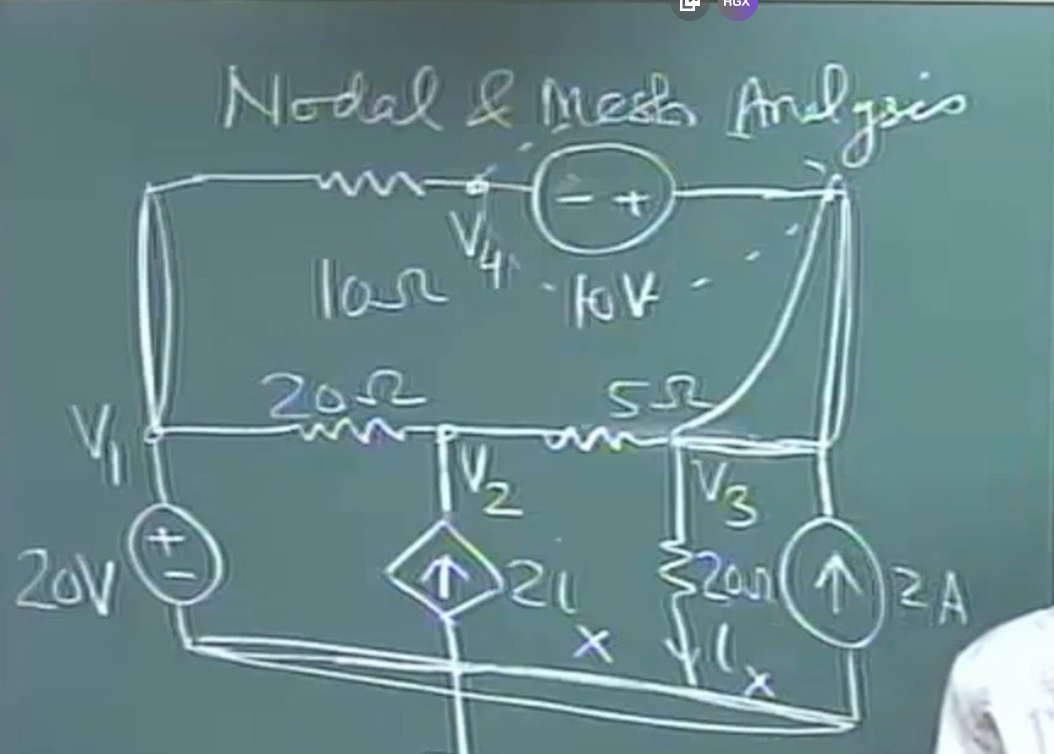 RGX
Nodal & Mesh Analysis
- +
V4
10Ω 10V
20Ω 5Ω
V1
V2 V3
+
-
20V 2i 20Ω 2A
x i
x